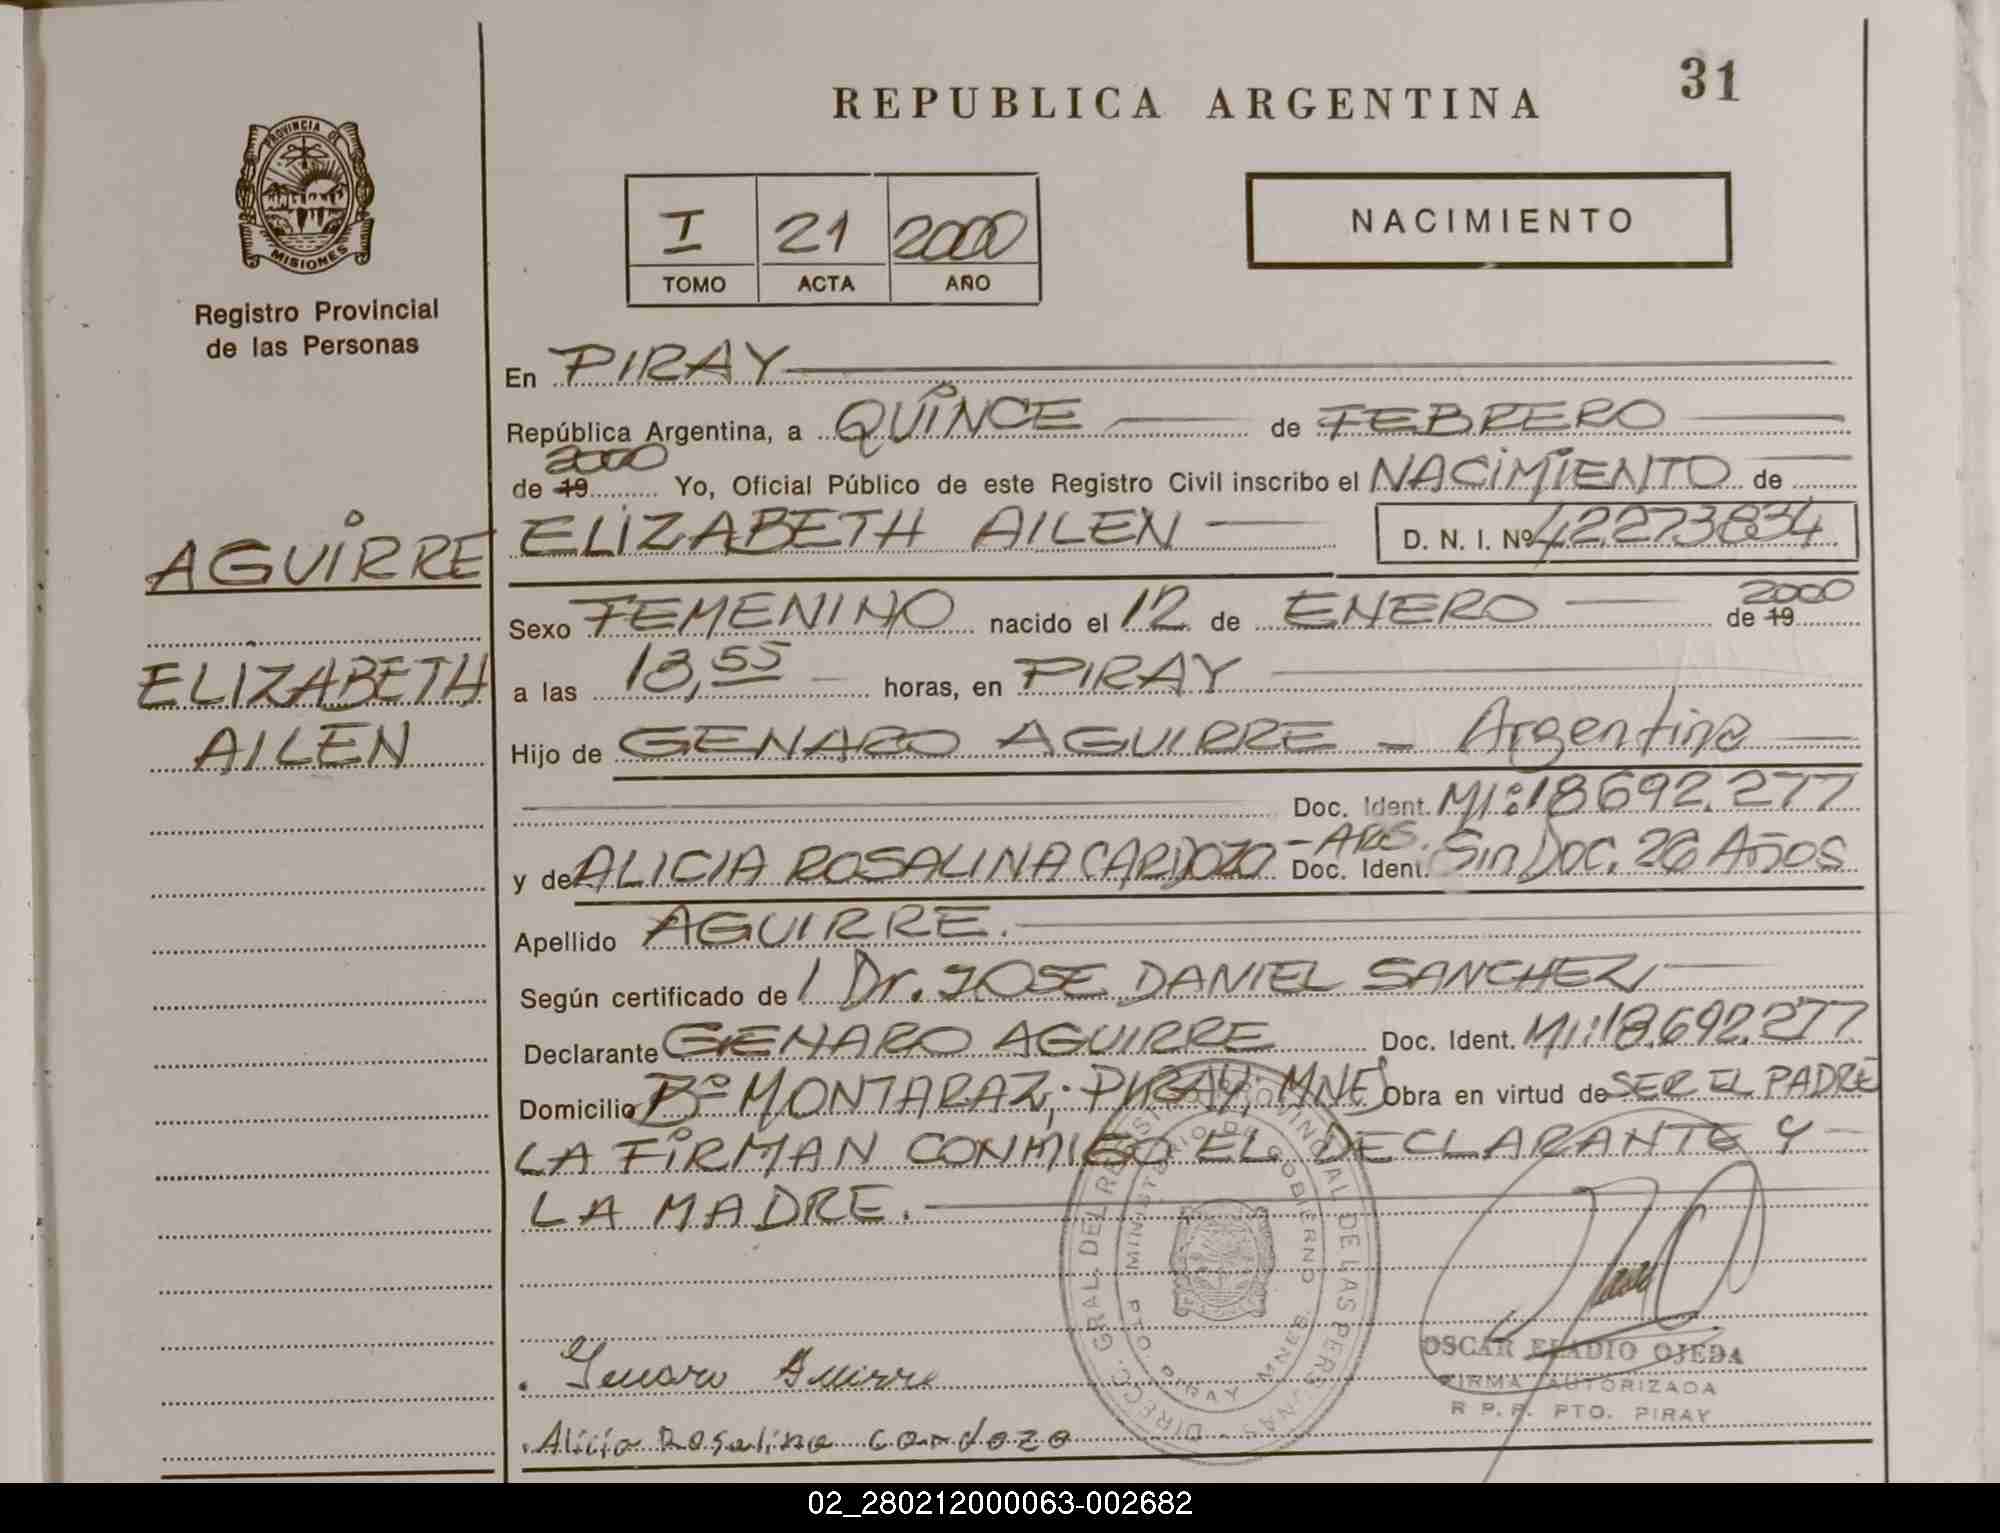 REPUBLICA ARGENTINA
31
PROVINCIA DE
MISIONES
Registro Provincial
de las Personas
I 21 2000
TOMO ACTA AÑO
NACIMIENTO
En PIRAY
República Argentina, a QUINCE de FEBRERO
2000
de 19 Yo, Oficial Público de este Registro Civil inscribo el NACIMIENTO de
ELIZABETH AILEN D. N. I. Nº 42273834
AGUIRRE
ELIZABETH
AILEN
Sexo FEMENINO nacido el 12 de ENERO de 19 2000
a las 18,55 horas, en PIRAY
Hijo de GENARO AGUIRRE - Argentino
Doc. Ident. MI:18692.277
y de ALICIA ROSALINA CARDOZO - ARG. Doc. Ident. Sin Doc. 26 Años
Apellido AGUIRRE.
Según certificado de Dr. JOSE DANIEL SANCHEZ
Declarante GENARO AGUIRRE Doc. Ident. MI:18.692.277
Domicilio Bº MONTARAZ; PIRAY, MNES Obra en virtud de SER EL PADRE
LA FIRMAN CONMIGO EL DECLARANTE Y
LA MADRE.
DIRECC. GRAL. DEL REGISTRO PROVINCIAL DE LAS PERSONAS
MINISTERIO DE GOBIERNO
PTO. PIRAY MNES.
Genaro Aguirre
Alicia Rosalina Cardozo
OSCAR ELADIO OJEDA
FIRMA AUTORIZADA
R P. P. PTO. PIRAY
02_280212000063-002682